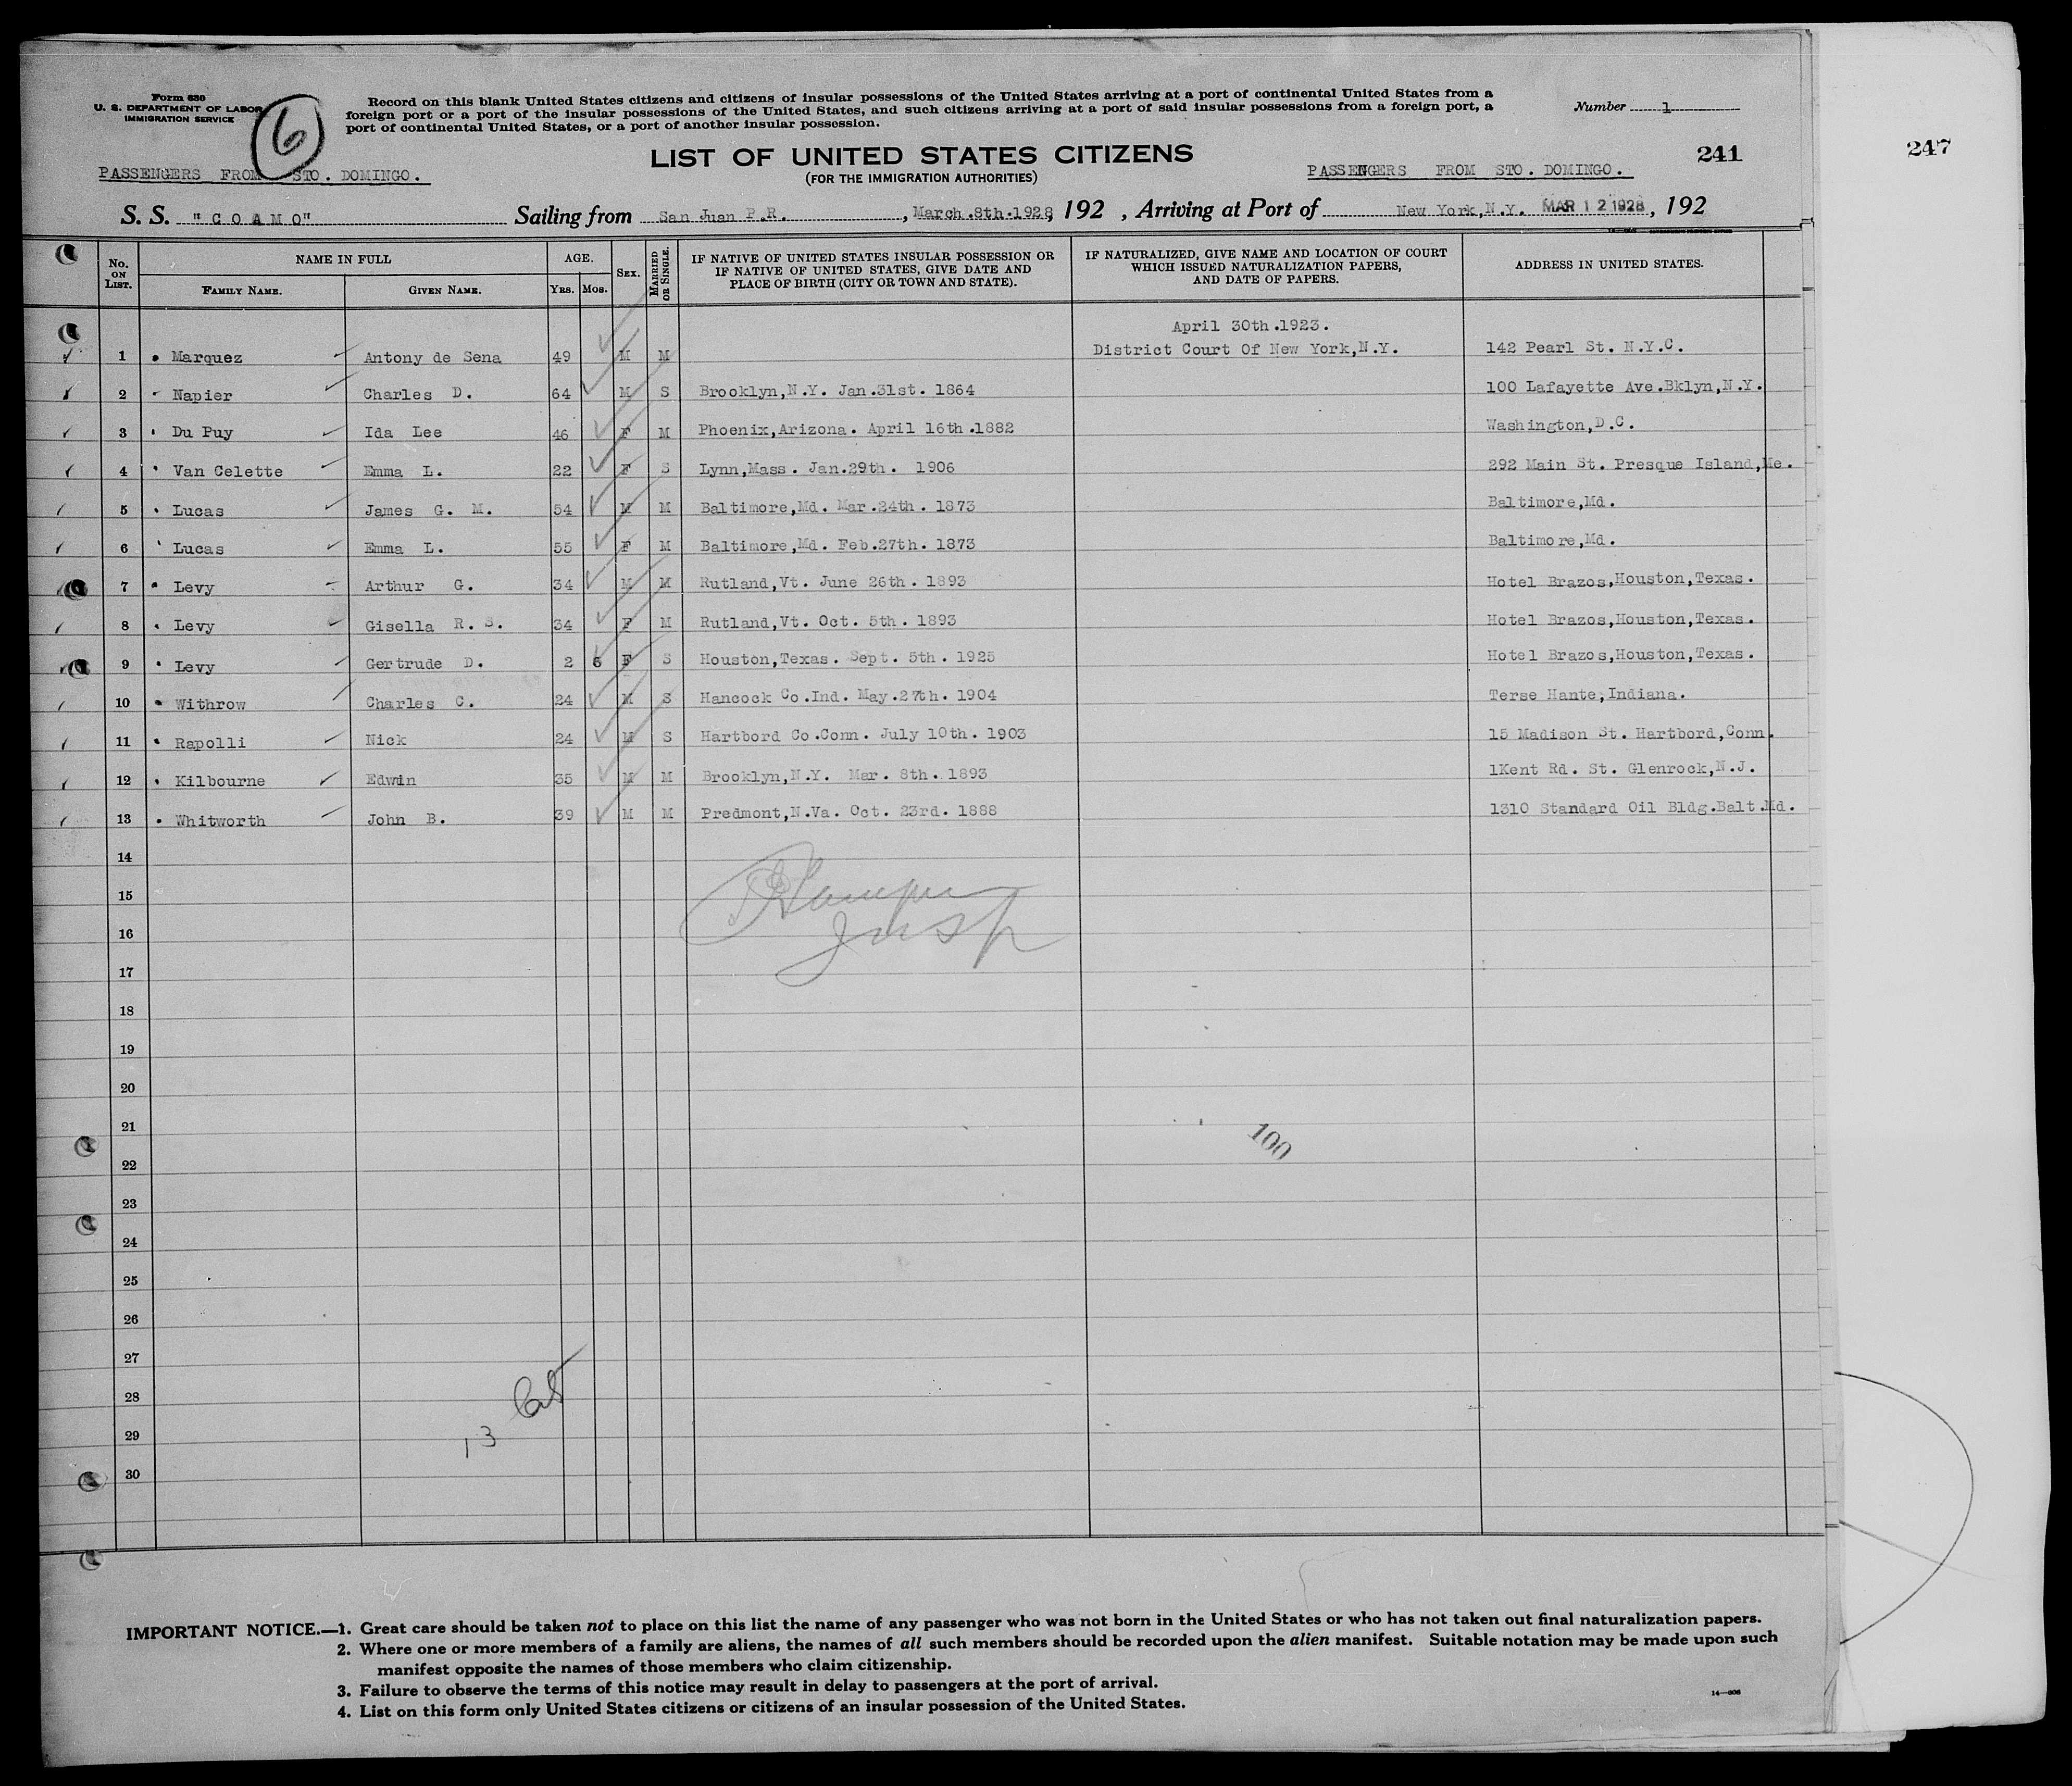 Form 630
U. S. DEPARTMENT OF LABOR
IMMIGRATION SERVICE
6
Record on this blank United States citizens and citizens of insular possessions of the United States arriving at a port of continental United States from a
foreign port or a port of the insular possessions of the United States, and such citizens arriving at a port of said insular possessions from a foreign port, a
port of continental United States, or a port of another insular possession.
Number 1
LIST OF UNITED STATES CITIZENS
(FOR THE IMMIGRATION AUTHORITIES)
241
247
PASSENGERS FROM STO. DOMINGO.
PASSENGERS FROM STO. DOMINGO.
S. S. "COAMO" Sailing from San Juan P.R., March.8th.1928, 192 , Arriving at Port of New York,N.Y. MAR 12 1928, 192
No. ON LIST. NAME IN FULL AGE. SEX. MARRIED OR SINGLE. IF NATIVE OF UNITED STATES INSULAR POSSESSION OR IF NATIVE OF UNITED STATES, GIVE DATE AND PLACE OF BIRTH (CITY OR TOWN AND STATE). IF NATURALIZED, GIVE NAME AND LOCATION OF COURT WHICH ISSUED NATURALIZATION PAPERS, AND DATE OF PAPERS. ADDRESS IN UNITED STATES.
FAMILY NAME. GIVEN NAME. YRS. MOS.
April 30th.1923.
1 Marquez Antony de Sena 49 M M District Court Of New York,N.Y. 142 Pearl St. N.Y.C.
2 Napier Charles D. 64 M S Brooklyn,N.Y. Jan.31st. 1864 100 Lafayette Ave.Bklyn,N.Y.
3 Du Puy Ida Lee 46 F M Phoenix,Arizona. April 16th.1882 Washington,D.C.
4 Van Celette Emma L. 22 F S Lynn,Mass. Jan.29th. 1906 292 Main St. Presque Island,Me.
5 Lucas James G. M. 54 M M Baltimore,Md. Mar.24th. 1873 Baltimore,Md.
6 Lucas Emma L. 55 F M Baltimore,Md. Feb.27th. 1873 Baltimore,Md.
7 Levy Arthur G. 34 M M Rutland,Vt. June 26th. 1893 Hotel Brazos,Houston,Texas.
8 Levy Gisella R. S. 34 F M Rutland,Vt. Oct. 5th. 1893 Hotel Brazos,Houston,Texas.
9 Levy Gertrude D. 2 6 F S Houston,Texas. Sept. 5th. 1925 Hotel Brazos,Houston,Texas.
10 Withrow Charles C. 24 M S Hancock Co.Ind. May.27th. 1904 Terse Hante,Indiana.
11 Rapolli Nick 24 M S Hartbord Co.Conn. July 10th. 1903 15 Madison St. Hartbord,Conn.
12 Kilbourne Edwin 35 M M Brooklyn,N.Y. Mar. 8th. 1893 1Kent Rd. St. Glenrock,N.J.
13 Whitworth John B. 39 M M Predmont,N.Va. Oct. 23rd. 1888 1310 Standard Oil Bldg.Balt.Md.
14
15
16 Insp
17
18
19
20
21
100
22
23
24
25
26
27
28
29
13
30
IMPORTANT NOTICE.—1. Great care should be taken not to place on this list the name of any passenger who was not born in the United States or who has not taken out final naturalization papers.
2. Where one or more members of a family are aliens, the names of all such members should be recorded upon the alien manifest. Suitable notation may be made upon such
manifest opposite the names of those members who claim citizenship.
3. Failure to observe the terms of this notice may result in delay to passengers at the port of arrival.
4. List on this form only United States citizens or citizens of an insular possession of the United States.